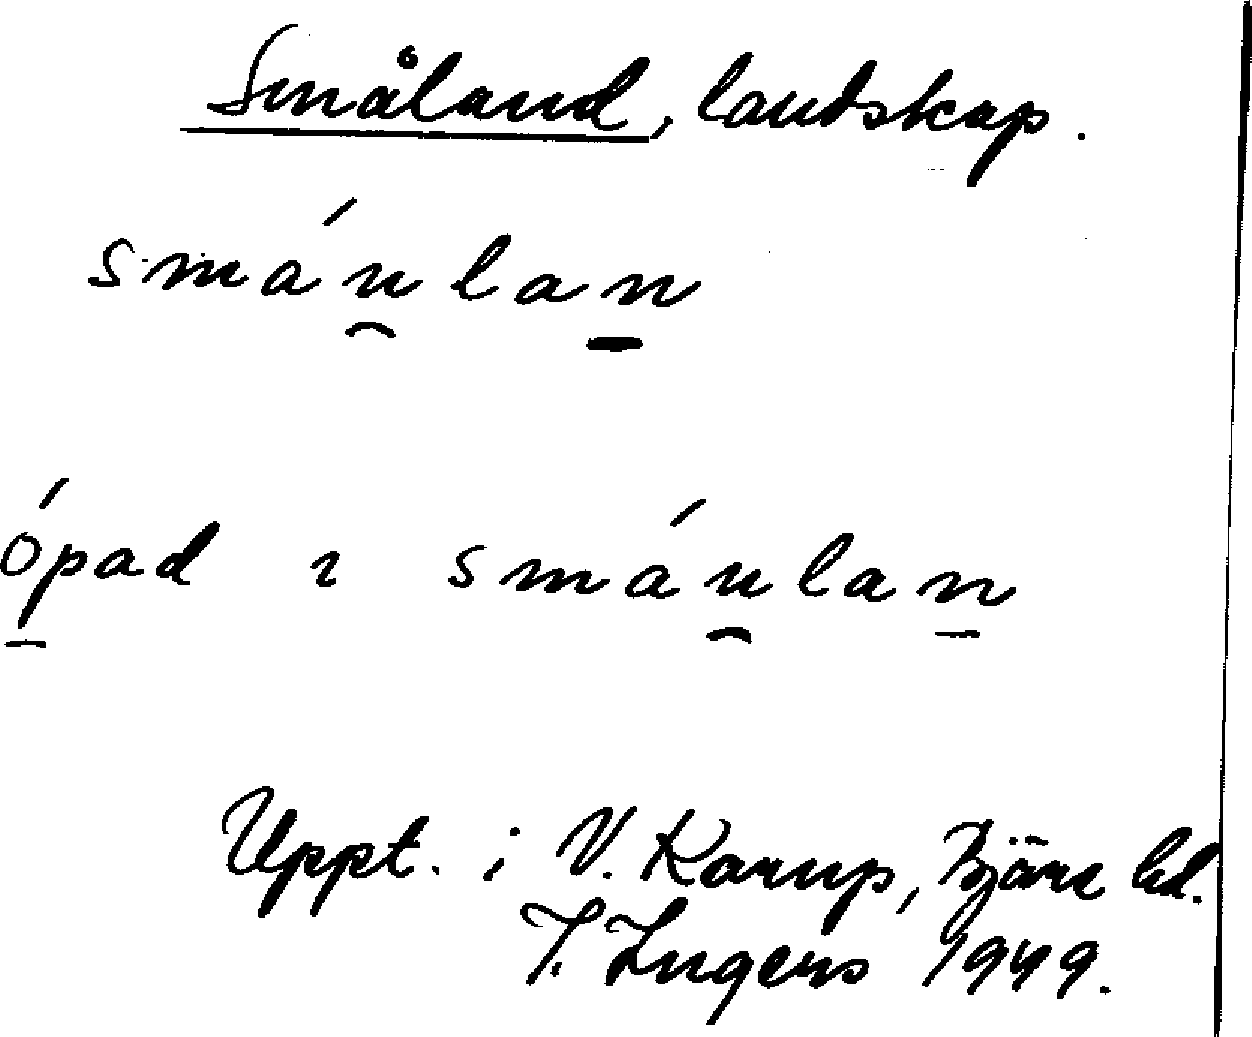 Småland, landskap.
smáu̯lan̠
ó̠pad ı smáu̯lan̠
Uppt. i V. Karup, Bjäre hd.
I. Ingers 1949.